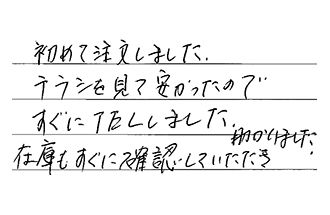 初めて注文しました.
チラシを見て安かったので
すぐにTELしました.
在庫もすぐにご確認していただき
助かりました!